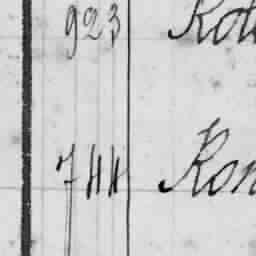 923 Rot
744 Ron